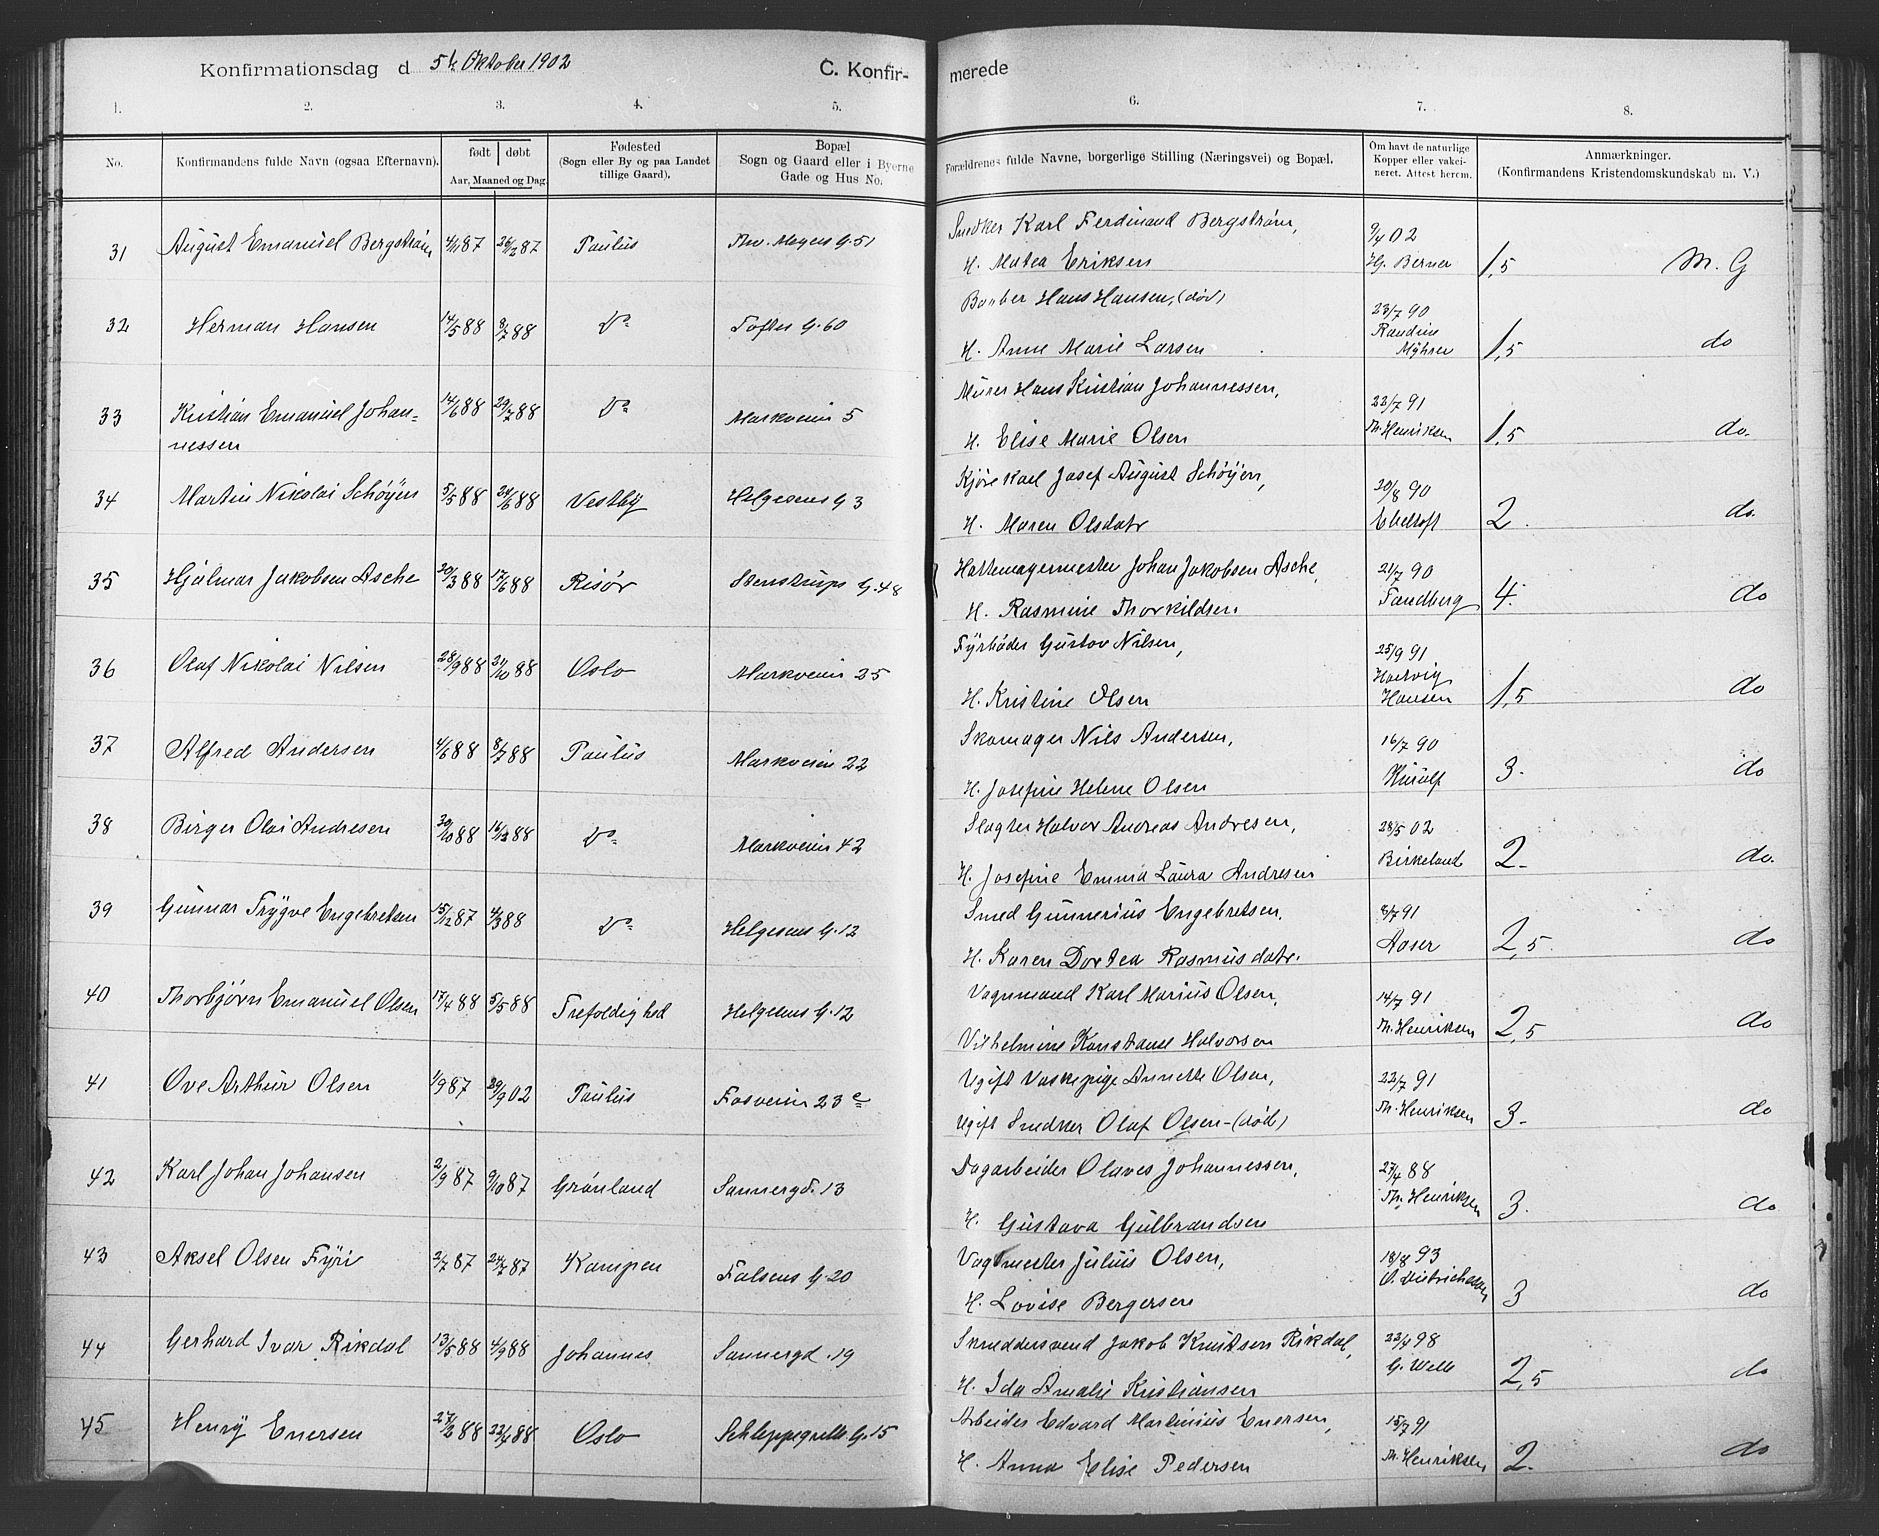 Konfirmationsdag d 5te Oktober 1902 C. Konfir- merede
1. 2. 3. 4. 5. 6. 7. 8.
No. Konfirmandens fulde Navn (ogsaa Efternavn). født døbt Aar, Maaned og Dag. Fødested (Sogn eller By og paa Landet tillige Gaard). Bopæl Sogn og Gaard eller i Byerne Gade og Hus No. Forældrenes fulde Navne, borgerlige Stilling (Næringsvei) og Bopæl. Om havt de naturlige Kopper eller vakcineret. Attest herom. Anmærkninger. (Konfirmandens Kristendomskundskab m. V.)
31 August Emanuel Bergstrøm 4/11 87 26/12 87 Paulus Thv. Meyers G. 51 Snedker Karl Ferdinand Bergstrøm, 9/4 02
H. Matea Eriksen Hj. Berner 1,5 M. G
32 Herman Hansen 14/5 88 8/7 88 Do Toftes G. 60 Barber Hans Hansen, (død) 23/7 90
H. Anne Marie Larsen Randine Myhrer 1,5 do
33 Kristian Emanuel Johan- 14/6 88 29/7 88 Do Markveien 5 Murer Hans Kristian Johannessen, 22/7 91
nessen H. Elise Marie Olsen Th. Henriksen 1,5 do.
34 Martin Nikolai Schøyen 5/5 88 24/6 88 Vestby Helgesens G 3 Kjørekarl Josef August Schøyen, 20/8 90
H. Maren Olsdatr Ebeltoft 2. do.
35 Hjalmar Jakobsen Asche 20/3 88 17/6 88 Risør Stenstrups G. 48 Hattemagermester Johan Jakobsen Asche, 21/7 90
H. Rasmine Thorkildsen Tandberg 4. do
36 Olaf Nikolai Nilsen 28/9 88 21/10 88 Oslo Markveien 25 Fyrbøder Gustav Nilsen, 25/9 91
H. Kristine Olsen Hartvig Hansen 1,5 do
37 Alfred Andersen 4/6 88 8/7 88 Paulus Markveien 22 Skomager Nils Andersen, 16/7 90
H. Josefine Helene Olsen 3. do
38 Birger Olai Andresen 30/10 88 16/12 88 Do Markveien 42 Slagter Halvor Andreas Andresen, 28/5 02
H. Josefine Emma Laura Andresen Birkeland 2. do.
39 Gunnar Trygve Engebretsen 15/12 87 4/3 88 Do Helgesens G. 12 Smed Gunnerius Engebretsen. 8/7 91
H. Karen Dortea Rasmusdatr. Aaser 2,5. do
40 Thorbjørn Emanuel Olsen 17/4 88 5/5 88 Trefoldighed Helgesens G. 12 Vognmand Karl Marius Olsen, 14/7 91
Vilhelmine Konstanse Halvorsen Th. Henriksen 2,5 do
41 Ove Arthur Olsen 1/9 87 29/9 02 Paulus Fosveien 23 c Ugift Vaskepige Annette Olsen, 22/7 91
Ugift Snedker Olaf Olsen - (død) Th. Henriksen 3. do
42 Karl Johan Johansen 2/9 87 9/10 87 Grønland Sannergd. 13 Dagarbeider Olaves Johannessen, 27/4 88
H. Gustava Gulbrandsen Th. Henriksen 3. do
43 Aksel Olsen Fyri 2/7 87 24/7 87 Kampen Falsens G. 20 Vagtmester Julius Olsen, 18/8 93
H. Lovise Bergersen O. Dietrichsson 3 do
44 Gerhard Ivar Rikdal 13/5 88 4/9 88 Johannes Sannergd. 19 Skræddersvend Jakob Knutsen Rikdal, 22/4 98
H. Ida Amalie Kristiansen G. Welle 2,5 do
45 Henry Enersen 27/2 88 22/4 88 Oslo Schleppegrells G. 15 Arbeider Edvard Martinius Enersen, 15/7 91
H. Anna Elise Pedersen Th. Henriksen 2. do